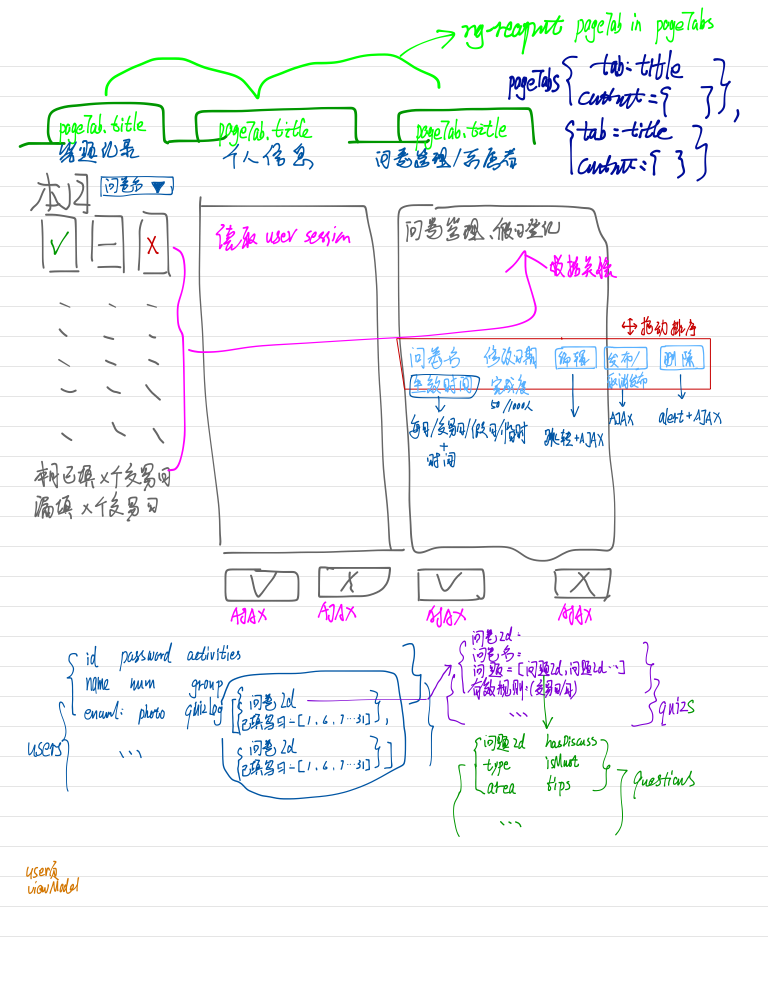 ng-repeat pageTab in pageTabs
pageTabs { tab: title
content = { } },
{ tab = title
content: { } }
pageTab.title
pageTab.title
pageTab.title
答题记录
个人信息
问卷管理/
本月
问卷名 ▼
✓ — X
本月已填 X个交易日
漏填 X个交易日
读取 user session
问卷管理、假日登记
数据关联
拖动排序
问卷名
修改日期
编辑
发布/
取消发布
删除
生效时间
完成度
50/1000人
每日/交易日/假日/临时
+
时间
跳转+AJAX
AJAX
alert+AJAX
V X V X
AJAX
AJAX
AJAX
AJAX
users
{ id password activities
name num group
email: photo quizLog
{ 问卷Id
已填写日-[1, 6, 7…31] },
{ 问卷Id
已填写日-[1, 6, 7…31] } ]
…
问卷Id:
问卷名:
问题=[问题Id, 问题Id…]
有效规则:(交易日/每)
…
quizs
{ 问题Id hasDiscuss
type isMust
area tips }
…
questions
user
viewModel